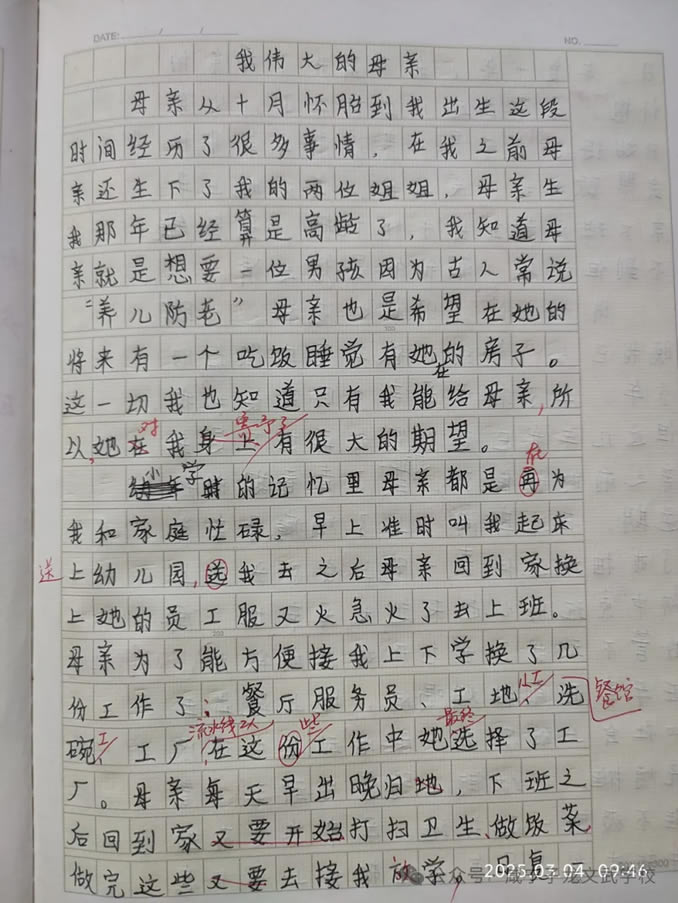 DATE: / /
NO.
我伟大的母亲
母亲从十月怀胎到我出生这段
时间经历了很多事情，在我之前母
亲还生下了我的两位姐姐，母亲生
我那年已经算是高龄了，我知道母
亲就是想要一位男孩因为古人常说
“养儿防老”母亲也是希望在她的
将来有一个吃饭睡觉有她的房子。
在
这一切我也知道只有我能给母亲，所
对 寄予了
以，她在我身上有很大的期望。
小学 在
时的记忆里母亲都是再为
我和家庭忙碌，早上准时叫我起床
送 上幼儿园，送我去之后母亲回到家换
上她的员工服又火急火了去上班。
母亲为了能方便接我上下学换了几
份工作了：餐厅服务员、工地小工、洗 餐馆
流水线工人 些 最终
碗工、工厂在这份工作中她选择了工
厂。母亲每天早出晚归地，下班之
后回到家又要开始打扫卫生、做饭菜
做完这些又要去接我放学，
2025-03-04 09:46
公众号
文武学校